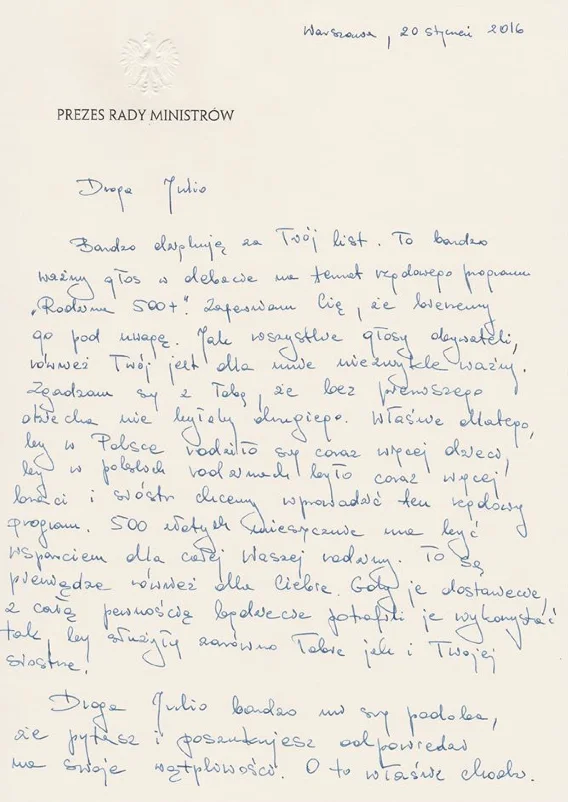 Warszawa, 20 styczeń 2016
PREZES RADY MINISTRÓW
Droga Julio
Bardzo dziękuję za Twój list. To bardzo
ważny głos w debacie na temat rządowego programu
„Rodzina 500+". Zapewniam Cię, że bierzemy
go pod uwagę. Jak wszystkie głosy obywateli,
również Twój jest dla mnie niezwykle ważny.
Zgadzam się z Tobą, że bez pierwszego
dziecka nie byłoby drugiego. Właśnie dlatego,
by w Polsce rodziło się coraz więcej dzieci,
by w polskich rodzinach było coraz więcej
braci i sióstr chcemy wprowadzić ten rządowy
program. 500 złotych miesięcznie ma być
wsparciem dla całej Waszej rodziny. To są
pieniądze również dla Ciebie. Gdy je dostaniecie,
z całą pewnością będziecie potrafili je wykorzystać
tak, by służyły zarówno Tobie jak i Twojej
siostrze!
Droga Julio bardzo mi się podoba,
że pytasz i poszukujesz odpowiedzi
na swoje wątpliwości. O to właśnie chodzi.